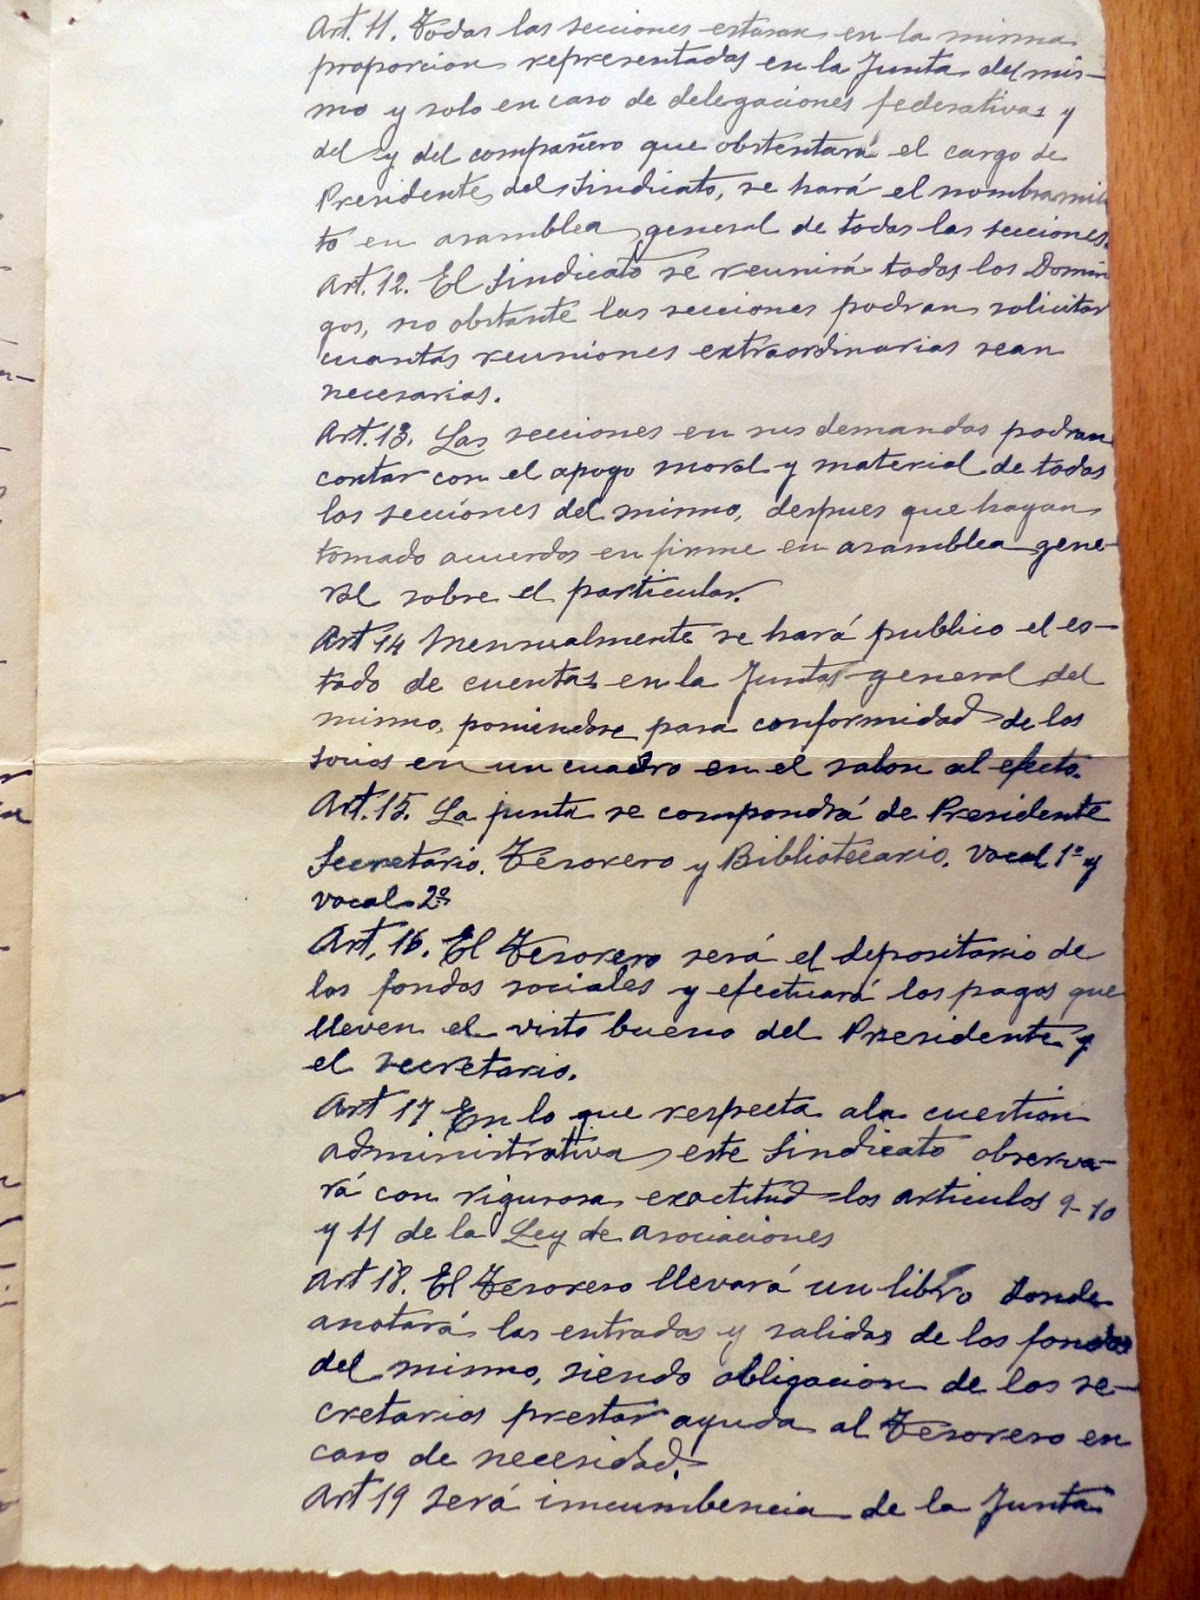 Art. 11. Todas las secciones estaran en la misma
proporcion representadas en la Junta del mis-
mo y solo en caso de delegaciones federativas y
del y del compañero que obstentará el cargo de
Presidente del Sindicato, se hará el nombramien
to en asamblea general de todas las secciones.
Art. 12. El Sindicato se reunirá todos los Domin
gos, no obstante las secciones podran solicitar
cuantas reuniones extraordinarias sean
necesarias.
Art. 13. Las secciones en sus demandas podran
contar con el apoyo moral y material de todas
las secciones del mismo, despues que hayan
tomado acuerdos en firme en asamblea gene-
ral sobre el particular.
Art 14 Mensualmente se hará publico el es-
tado de cuentas en la Junta general del
mismo, poniendose para conformidad de los
socios en un cuadro en el salon al efecto.
Art. 15. La junta se compondrá de Presidente
Secretario. Tesorero y Bibliotecario. Vocal 1º y
vocal 2º
Art. 16. El Tesorero será el depositario de
los fondos sociales y efectuará los pagos que
lleven el visto bueno del Presidente y
el secretario.
Art 17 En lo que respecta ala cuestion
administrativa este Sindicato observa-
rá con rigurosa exactitud los articulos 9-10
y 11 de la Ley de asociaciones
Art 18. El Tesorero llevará un libro donde
anotará las entradas y salidas de los fondos
del mismo, siendo obligacion de los se-
cretarios prestar ayuda al Tesorero en
caso de necesidad.
Art 19 será incumbencia de la Junta